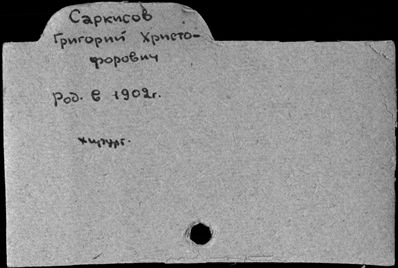 Саркисов
Григорий Христо-
форович
Род. в 1902г.
хирург.